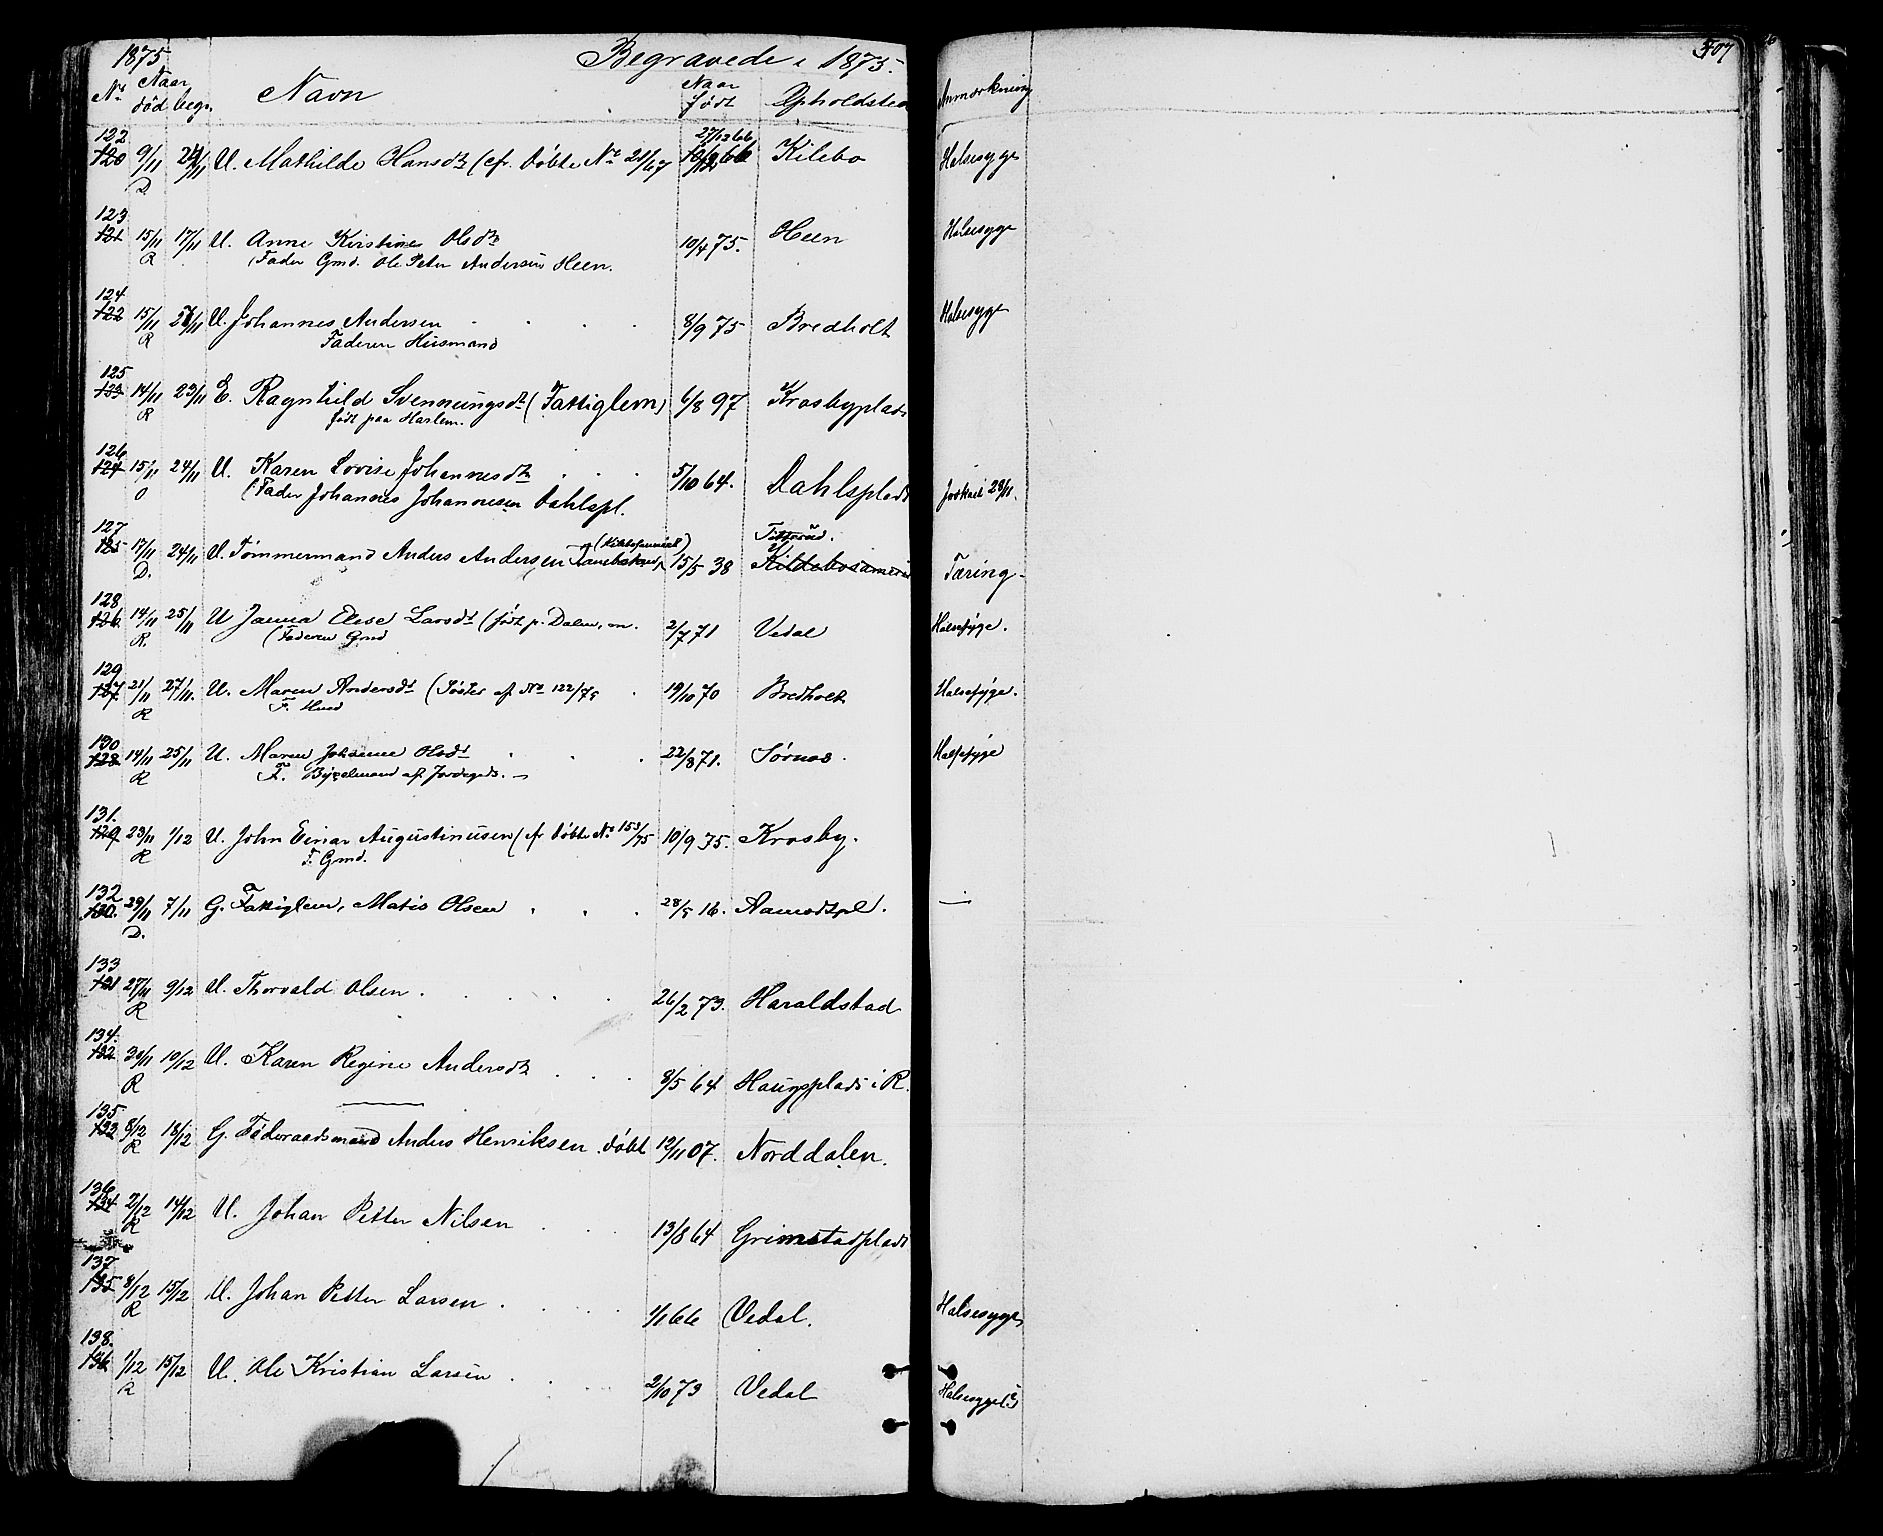 1875 Begravede i 1875. 407
No Naar død begr. Navn Naar født Opholdsted Anmærkning
122 27/12 66
120 9/11 24/11 U. Mathilde Hansdt (cfr. døbte No 21/67 Kilebo Halsesyge
D.
123
121 15/11 17/11 U. Anne Kirstine Olsdt 10/4 75. Heen Halsesyge
R (Fader Gmd. Ole Peter Andersen Heen.
124
122 15/11 U. Johannes Andersen 8/9 75 Bredholt Halsesyge
R Faderen Husmand
125
123 14/11 23/11 E. Ragnhild Svennungsdt (Fattiglem) 6/8 97 Krosbyplads
R født paa Harlem.
126
124 15/11 24/11 U. Karen Lovise Johannesdt 5/10 64. Dahlsplads 28/11.
O (Fader Johannes Johannesen Dahlspl.
127
125 17/11 24/11 U. Tømmermand Anders Andersen 15/5 38 Tæring
D.
128
126 14/11 25/11 U Janna Elise Larsdt (født p. Dalen, 2/7 71 Vedal Halsesyge.
R. (Faderen Gmd
129
127 21/11 27/11. U. Maren Andersdt (Søster af No 122/75 19/10 70 Bredholt Halsesyge.
R F. Husd
130
128 14/11 25/11 U. Maren Johanne Olsdt 22/8 71. Sørnæs. Halsesyge
R F. Bygselmand af Jordegods.
131.
129 23/11 1/12 U. John Einar Augustinusen (cfr døbte No 153/75 10/9 75. Krosby.
R F. Gmd.
132
130. 29/11 7/11 G. Fattiglem, Matis Olsen 28/5 16. Aamodtpl. —
D.
133
131 27/11 9/12 U. Thorvald Olsen 26/2 73. Haraldstad
R
134.
132 10/12 U. Karen Regine Andersdt 8/5 64 Haugsplads i R.
R
135
133 8/12 18/12 G. Føderaadsmand Anders Henriksen døbt 12/11 07. Norddalen.
R
136
134 2/12 14/12 U. Johan Petter Nilsen 13/8 64 Grimstadplads
R
137
135 8/12 15/12 U. Johan Petter Larsen 1/1 66 Vedal. Halsesyge
R
138.
136 1/12 15/12 U. Ole Kristian Larsen 2/10 73 Vedal Halsesyge(?)
R